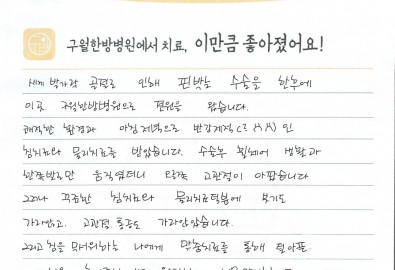 구월한방병원에서 치료, 이만큼 좋아졌어요!
새끼 발가락 골절로 인해 핀박는 수술을 한후에
이곳 구월한방병원으로 전원을 왔습니다.
쾌적한 환경과 아침저녁으로
침치료와 물리치료를 받았습니다. 수술후 휠체어 생활과
한쪽발로만 움직였더니 고관절이 아팠습니다
그러나 꾸준한 침치료와 물리치료덕분에 붓기도
가라앉고, 고관절 통증도 가라앉았습니다.
그리고 침을 무서워하는 나에게 치료를 통해 덜아픈